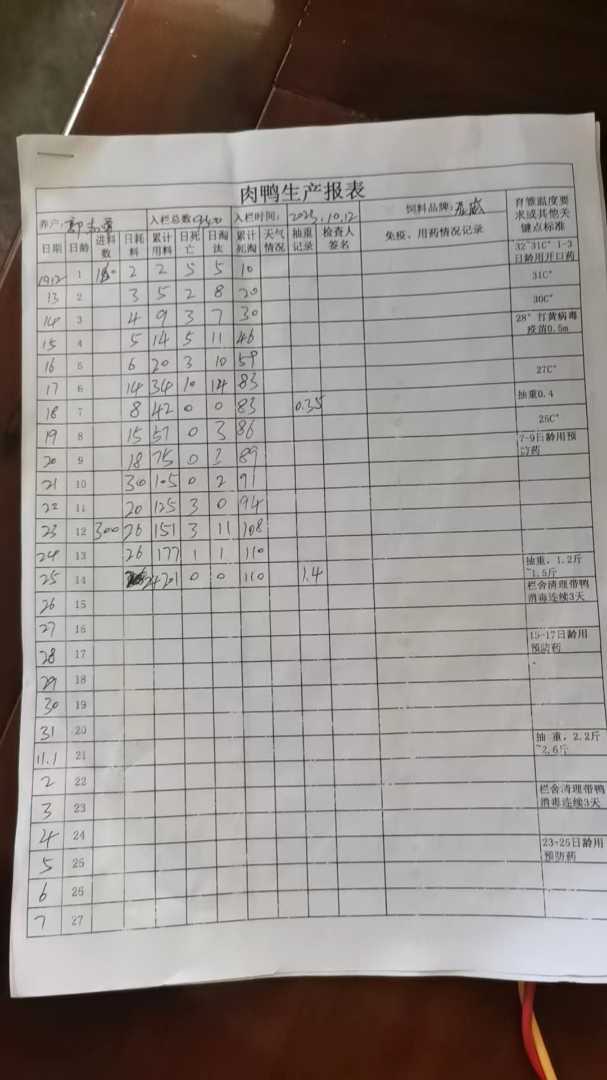 肉鸭生产报表
养户: 入栏总数: 入栏时间: 2025.10.12 饲料品牌: 育雏温度要求或其他关键点标准
日期 日龄 进料数 日耗料 累计用料 日死亡 日淘汰 累计死淘 天气情况 抽重记录 检查人签名 免疫、用药情况记录
1 2 2 5 5 10 32~31C° 1-3日龄用开口药
13 2 3 5 2 8 20 31C°
14 3 4 9 3 7 30 30C°
15 4 5 14 5 11 46 28° 打黄病毒疫苗0.5m
16 5 6 20 3 10 59
17 6 14 34 10 14 83 27C°
18 7 8 42 0 0 83 0.35 抽重0.4
19 8 15 57 0 3 86 26C°
20 9 18 75 0 3 89 7-9日龄用预防药
21 10 30 105 0 2 91
22 11 20 125 3 0 94
23 12 300 26 151 3 11 108
24 13 26 177 1 1 110
25 14 24 201 0 0 110 1.4 抽重，1.2斤~1.5斤
26 15 栏舍清理带鸭消毒连续3天
27 16
28 17 15-17日龄用预防药
29 18
30 19
31 20
11.1 21 抽 重，2.2斤~2.6斤
2 22
3 23 栏舍清理带鸭消毒连续3天
4 24
5 25 23-25日龄用预防药
6 26
7 27